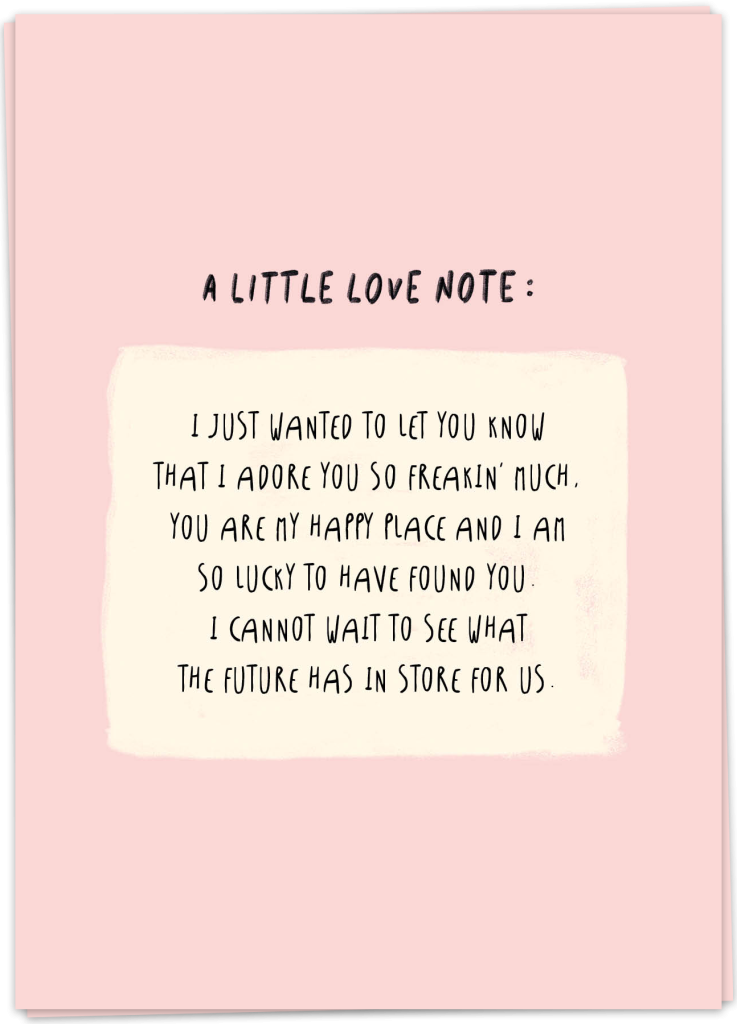 A LITTLE LOVE NOTE:
I JUST WANTED TO LET YOU KNOW
THAT I ADORE YOU SO FREAKIN' MUCH.
YOU ARE MY HAPPY PLACE AND I AM
SO LUCKY TO HAVE FOUND YOU.
I CANNOT WAIT TO SEE WHAT
THE FUTURE HAS IN STORE FOR US.